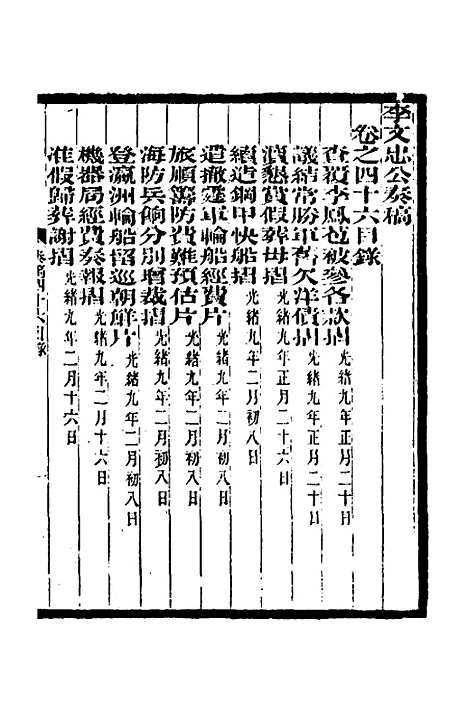 李文忠公奏稿
卷之四十六目錄
查覆李鳳苞被參各款摺 光緒九年正月二十日
議結常勝軍舊欠洋債摺 光緒九年正月二十日
瀆懇賞假葬母摺 光緒九年正月二十六日
續造鋼甲快船摺 光緒九年二月初八日
遣撤寔軍輪船經費片 光緒九年二月初八日
旅順籌防費難預估片 光緒九年二月初八日
海防兵餉分別增裁摺 光緒九年二月初八日
登瀛洲輪船留巡朝鮮片 光緒九年二月初八日
機器局經費奏報摺 光緒九年二月十六日
准假歸葬謝摺 光緒九年二月十六日
奏稿四十六目錄 一